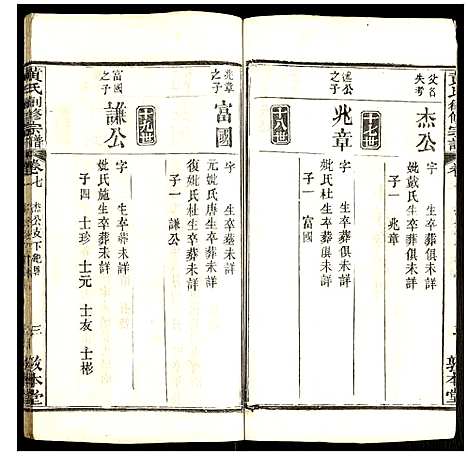 父名失考
杰公
字 生卒葬俱未詳
妣戴氏生卒葬俱未詳
子一 兆章
十七世
杰公之子
兆章
字 生卒葬俱未詳
妣氏杜生卒葬俱未詳
子一 富國
敦本堂
十八世
兆章之子
富國
字 生卒墓未詳
元妣氏唐生卒葬未詳
復妣氏杜生卒葬未詳
子一 謙公
十九世
富國之子
謙公
字 生卒葬未詳
妣氏施生卒葬未詳
子四 士珍 士元 士友 士彬
黃氏創修宗譜
卷七
杰公支下
三
敦本堂